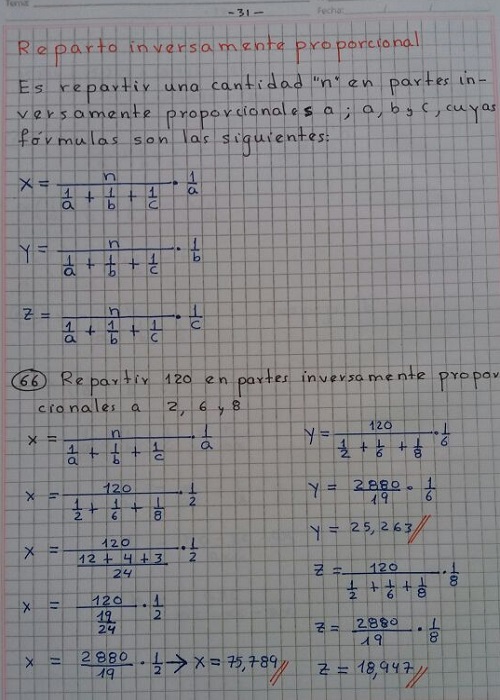 Tema:
-31-
Fecha: / /
Reparto inversamente proporcional
Es repartir una cantidad "n" en partes in-
versamente proporcionales a ; a, b y c, cuyas
fórmulas son las siguientes:
X = n / (1/a + 1/b + 1/c) · 1/a
Y = n / (1/a + 1/b + 1/c) · 1/b
Z = n / (1/a + 1/b + 1/c) · 1/c
66 Repartir 120 en partes inversamente propor
cionales a 2, 6 y 8
X = n / (1/a + 1/b + 1/c) · 1/a
X = 120 / (1/2 + 1/6 + 1/8) · 1/2
X = 120 / ((12 + 4 + 3) / 24) · 1/2
X = 120 / (19/24) · 1/2
X = 2880/19 · 1/2 → X = 75,789 //
Y = 120 / (1/2 + 1/6 + 1/8) · 1/6
Y = 2880/19 · 1/6
Y = 25,263 //
Z = 120 / (1/2 + 1/6 + 1/8) · 1/8
Z = 2880/19 · 1/8
Z = 18,947 //